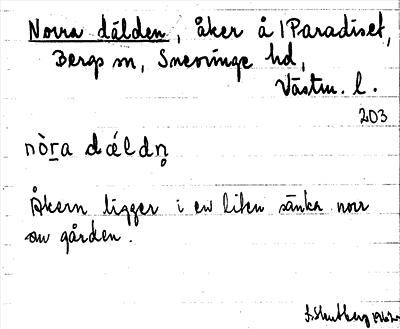 Norra dälden, åker å 1 Paradiset,
Bergs sn, Snevringe hd,
Västm. l.
203
nò̱ra dældn̥
Åkern ligger i en liten sänka norr
om gården.